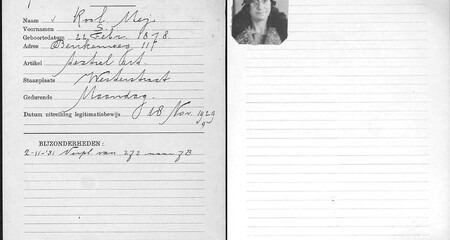 Naam v. Kool. Mej.
Voornamen S.
Geboortedatum 22 Febr. 1878.
Adres 117
Artikel art.
Staanplaats Westerstraat
Gedurende Maandag
Datum uitreiking legitimatiebewijs 18 Nov. 1929
BIJZONDERHEDEN:
2-11-'31 Verpl van 272 naar 7B